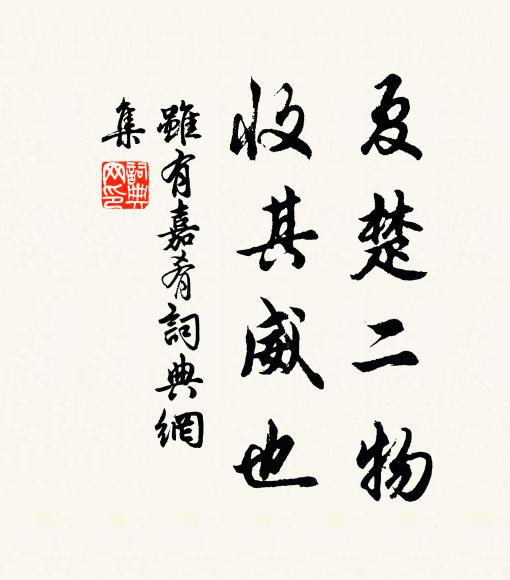 夏楚二物
收其威也
雖有嘉肴詞典網
集
詞典
网印